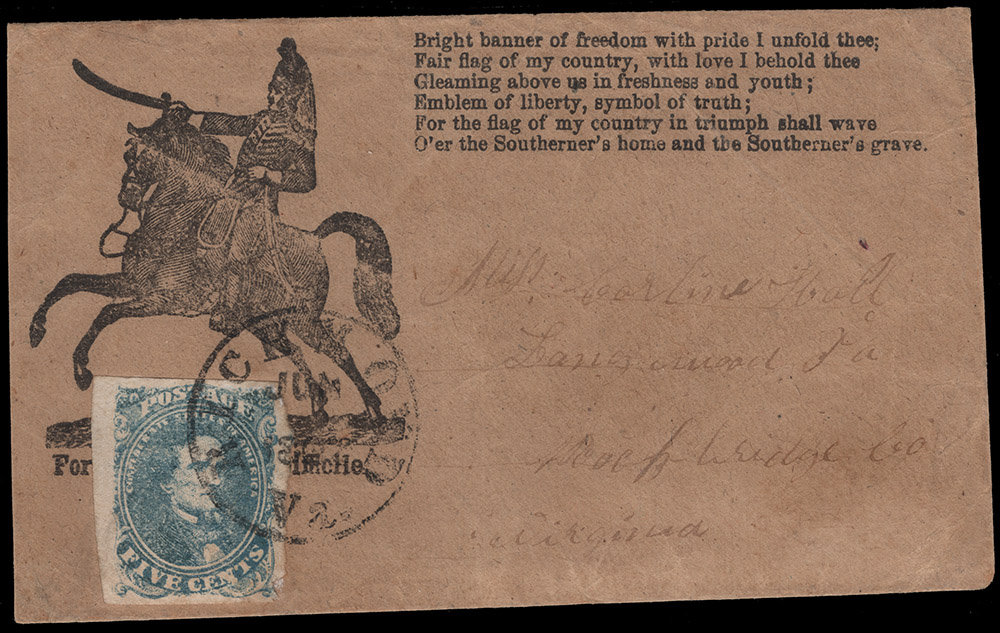 Bright banner of freedom with pride I unfold thee;
Fair flag of my country, with love I behold thee
Gleaming above us in freshness and youth;
Emblem of liberty, symbol of truth;
For the flag of my country in triumph shall wave
O'er the Southerner's home and the Southerner's grave.
Miss
Va
RICHMOND
JUN
Va.
For
POSTAGE
CONFEDERATE STATES OF AMERICA
FIVE CENTS
Rockbridge Co
Virginia